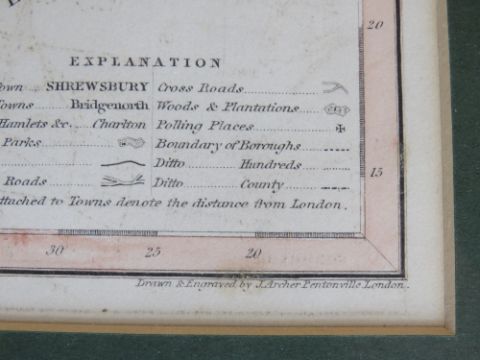 EXPLANATION
Town SHREWSBURY Cross Roads
Towns Bridgenorth Woods & Plantations
Hamlets &c. Charlton Polling Places
Parks Boundary of Boroughs
Ditto Hundreds
Roads Ditto County
attached to Towns denote the distance from London.
20
15
30 25 20
Drawn & Engraved by J. Archer Pentonville London.